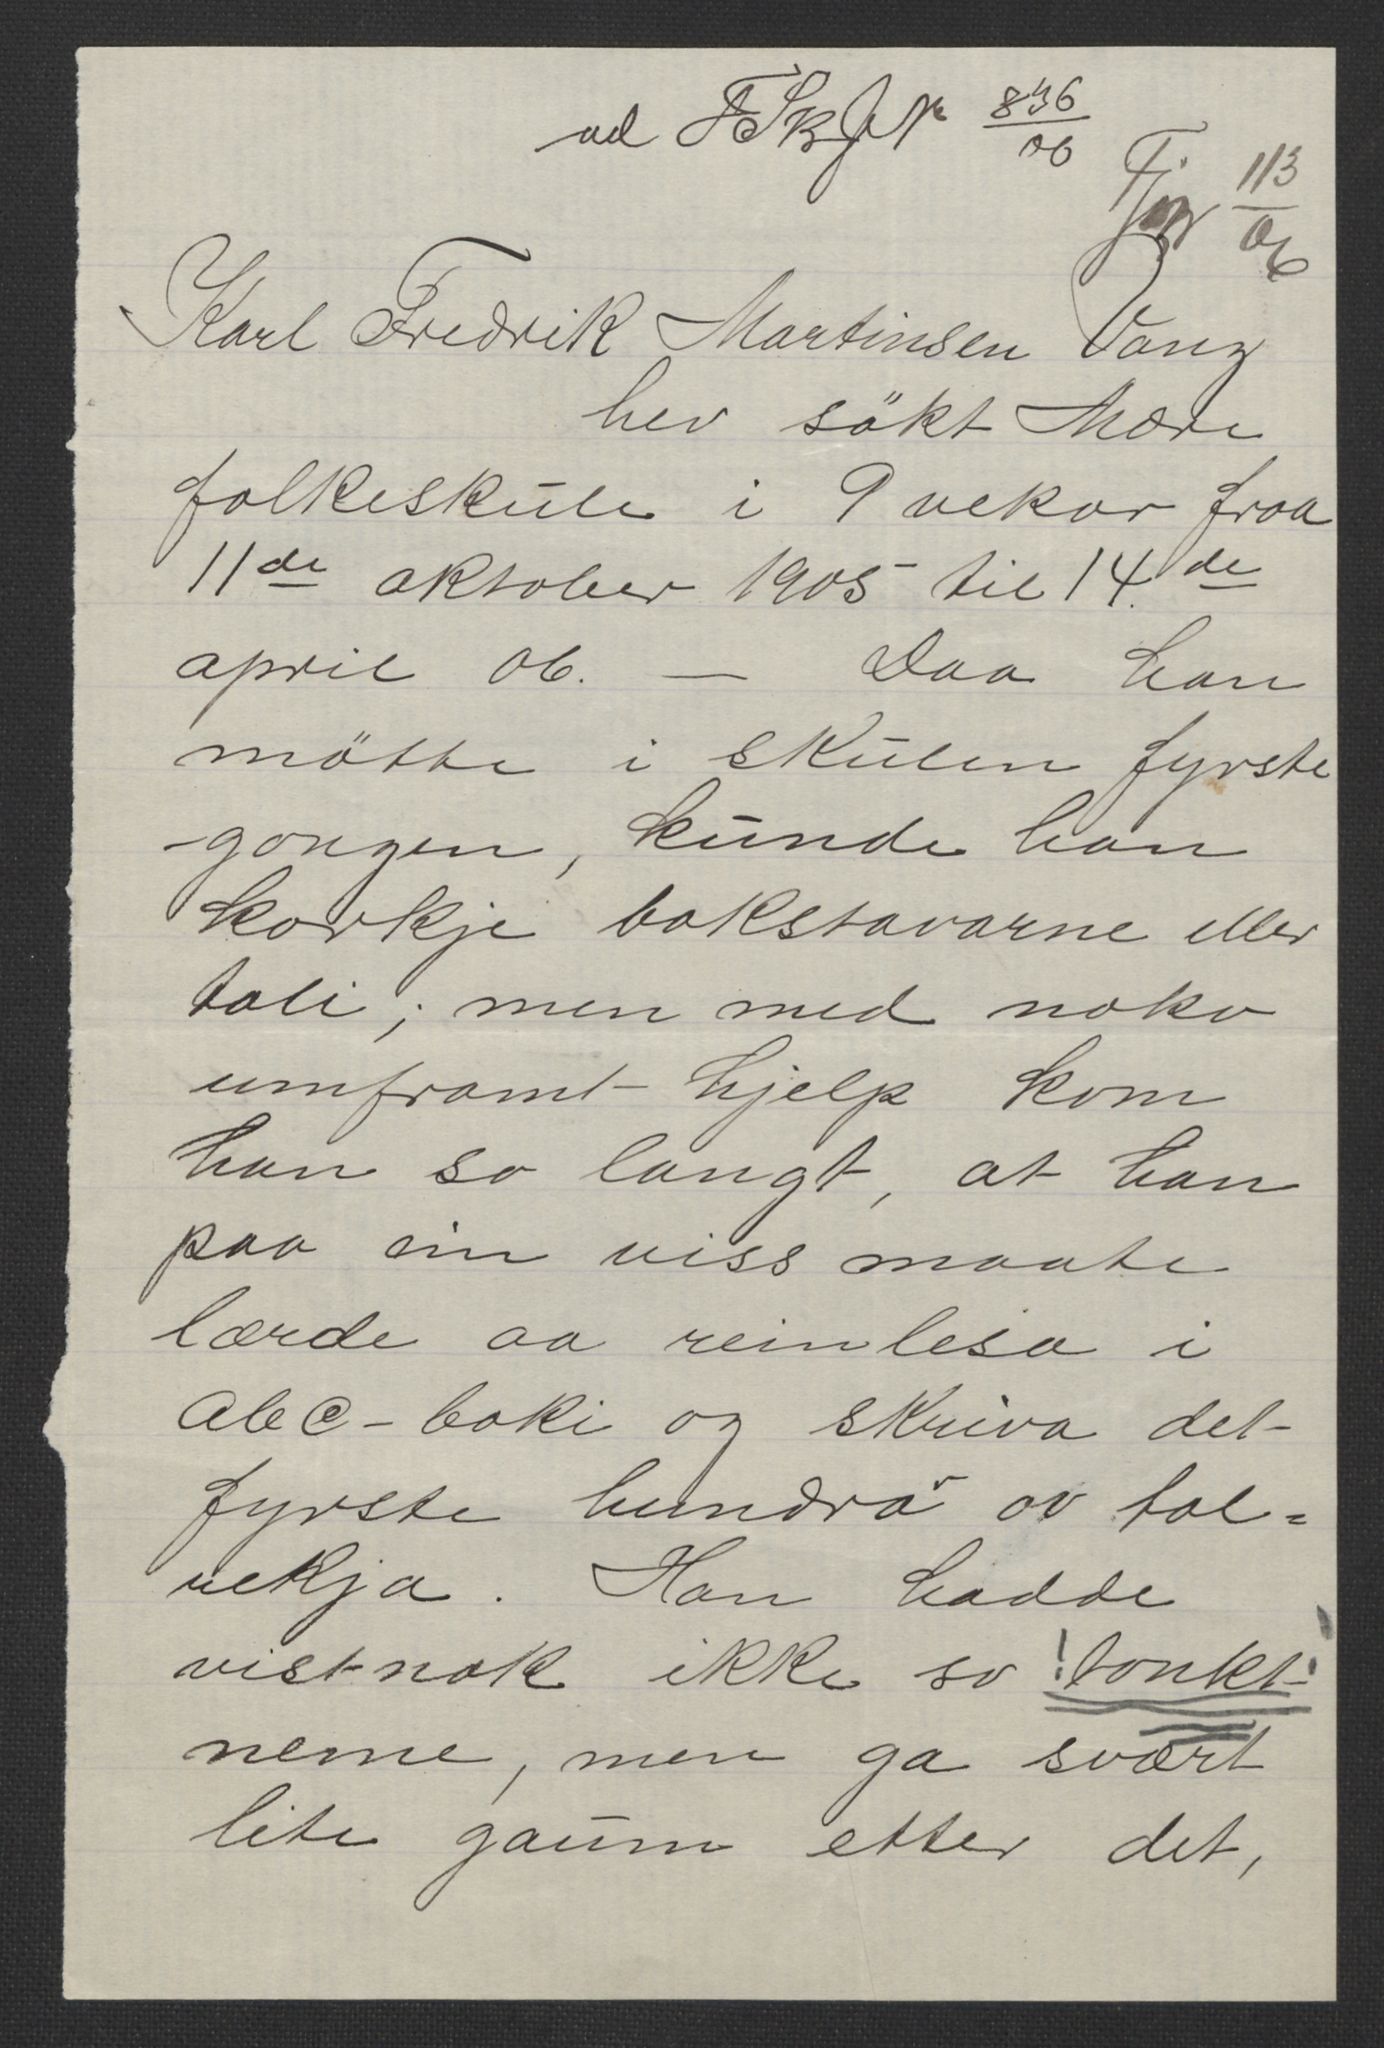 ad FSkJN 836/06
113/06
Karl Fredrik Martinsen Vang
hev sökt Mære
folkeskule i 9 vekor fraa
11de oktober 1905 til 14.de
april 06. — Daa han
mötte i skulen fyrste
-gongen, kunde han
korkje bokstavarne eller
tali; men med noko
umframt hjelp kom
han so langt, at han
paa ein viss maate
lærde aa reinlesa i
abc-boki og skriva det
fyrste hundra av tal=
rekja. Han hadde
vistnok ikke so ! tonkt !
neme, men ga svært
lite gaum etter det,